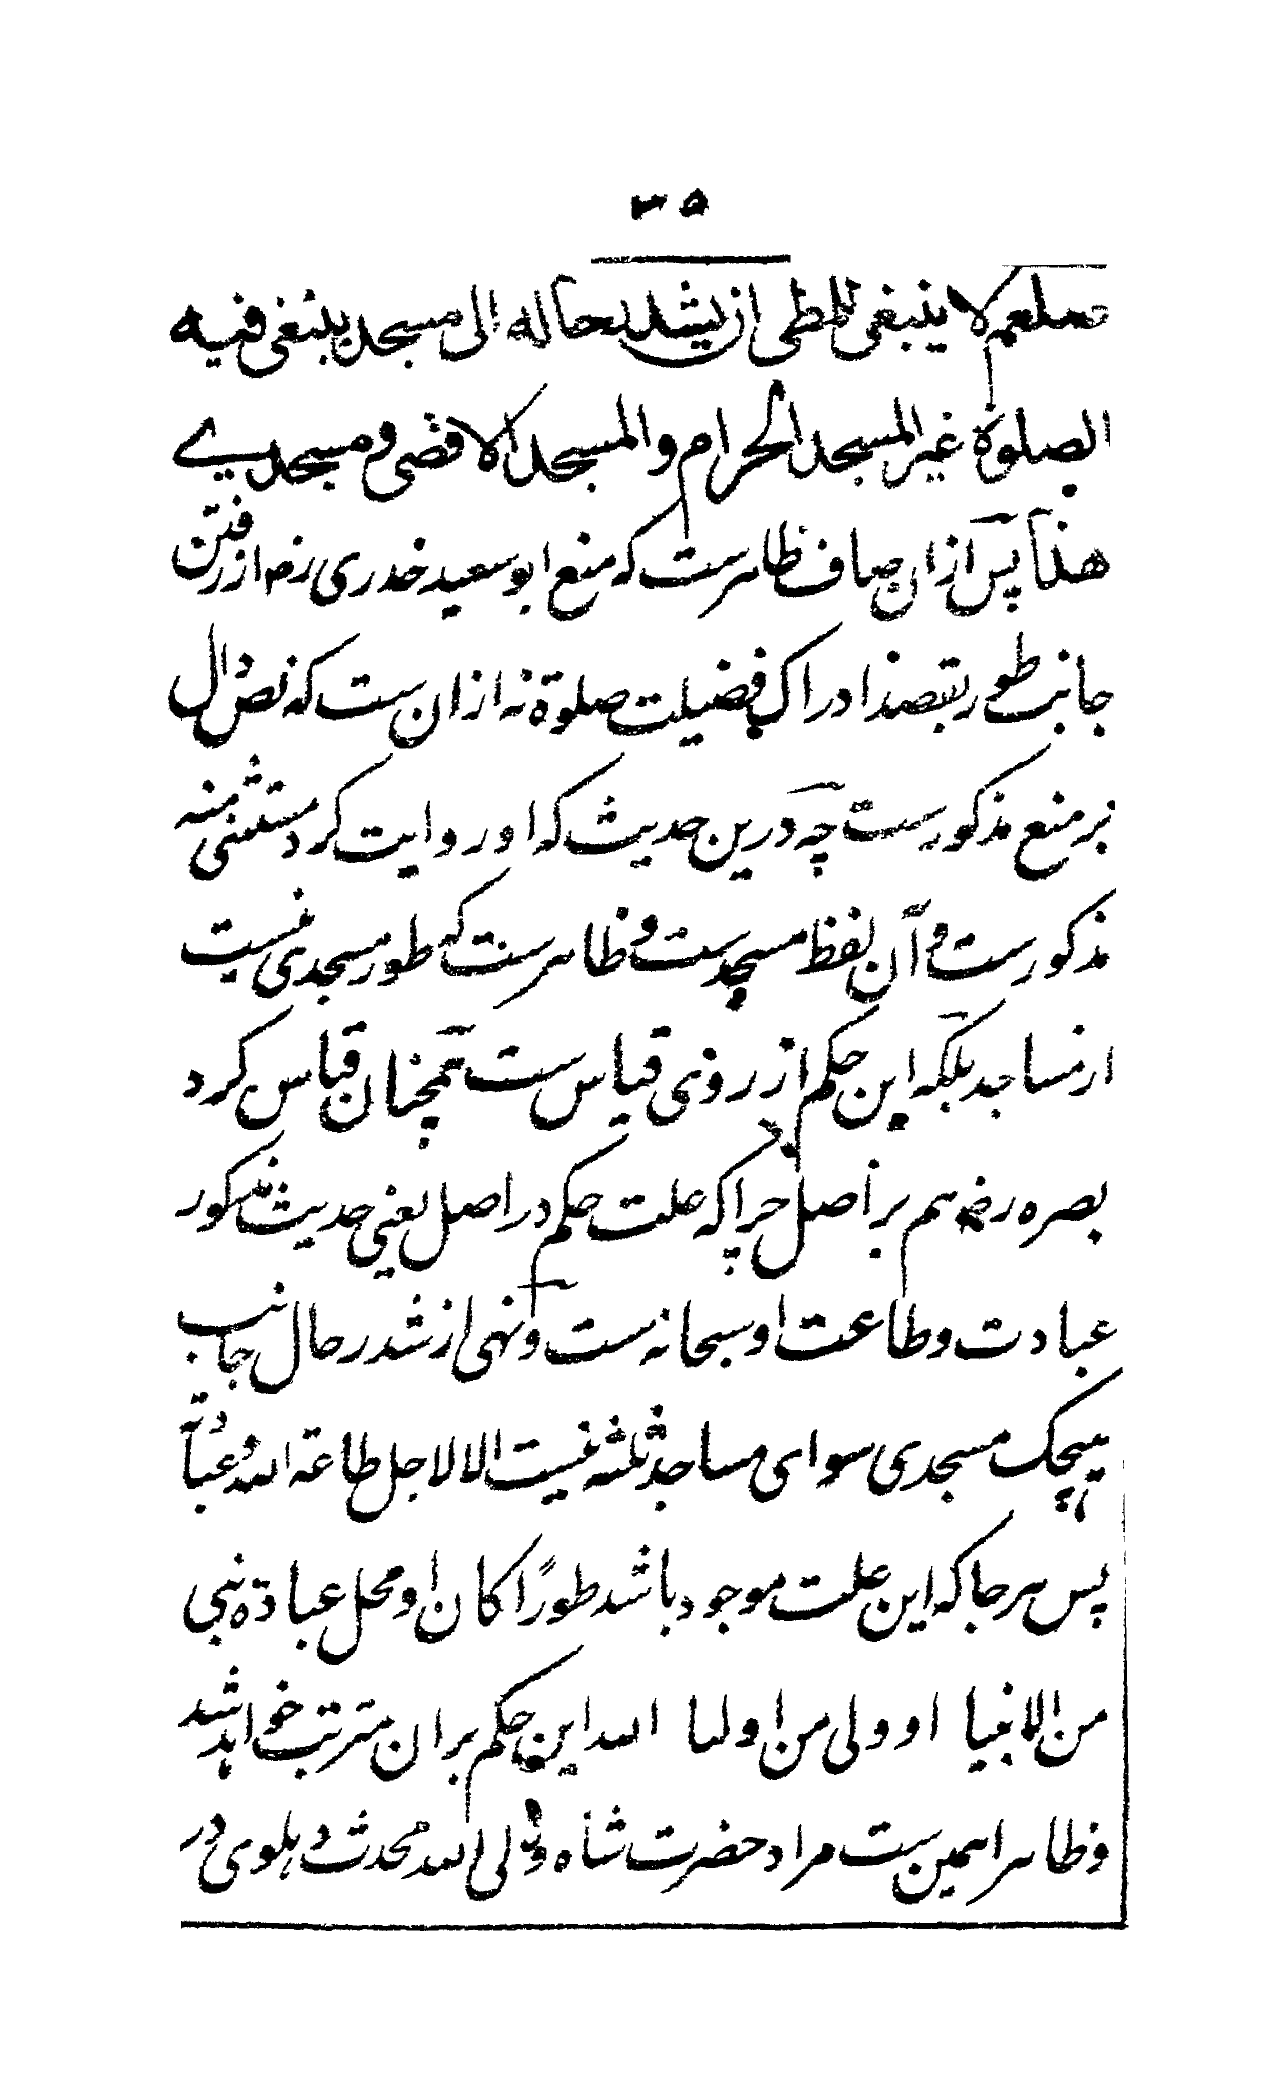 ۳۵
صلعم لا ينبغى للمطى ان يشد رحاله الى مسجد ينبغى فيه
الصلوة غير المسجد الحرام والمسجد الاقصى ومسجدے
هذا پس ازان صاف ظاہرست که منع ابوسعید خدری رضہ از رفتن
جانب طور بقصد ادراک فضیلت صلوة نه ازان ست که نص دال
بر منع مذکورست چه درین حدیث که او روایت کرد مستثنی منه
مذکورست و آن لفظ مسجدست و ظاہرست که طور مسجدی نیست
از مساجد بلکه این حکم از روئی قیاس ست همچنان قیاس کرد
بصره رضہ ہم بر اصل چراکه علت حکم در اصل یعنی حدیث مذکور
عبادت و طاعت او سبحانه ست و نہی از شد رحال جانب
ہیچک مسجدی سوای مساجد ثلثه نیست الا لاجل طاعة الله و عبادته
پس ہر جا که این علت موجود باشد طورًا کان او محل عبادة نبی
من الانبیا او ولی من اولیا الله این حکم بران مترتب خواہد شد
و ظاہر اہمین ست مراد حضرت شاه ولی الله محدث دہلوی در